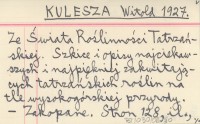 KULESZA Witold 1927.
Ze Świata Roślinności Tatrzań-
skiej. Szkice i opisy najciekaw-
szych i najpiękniej zakwitają-
cych tatrzańskich roślin na
tle wysokogórskiej przyrody.
– Zakopane. Stron 128